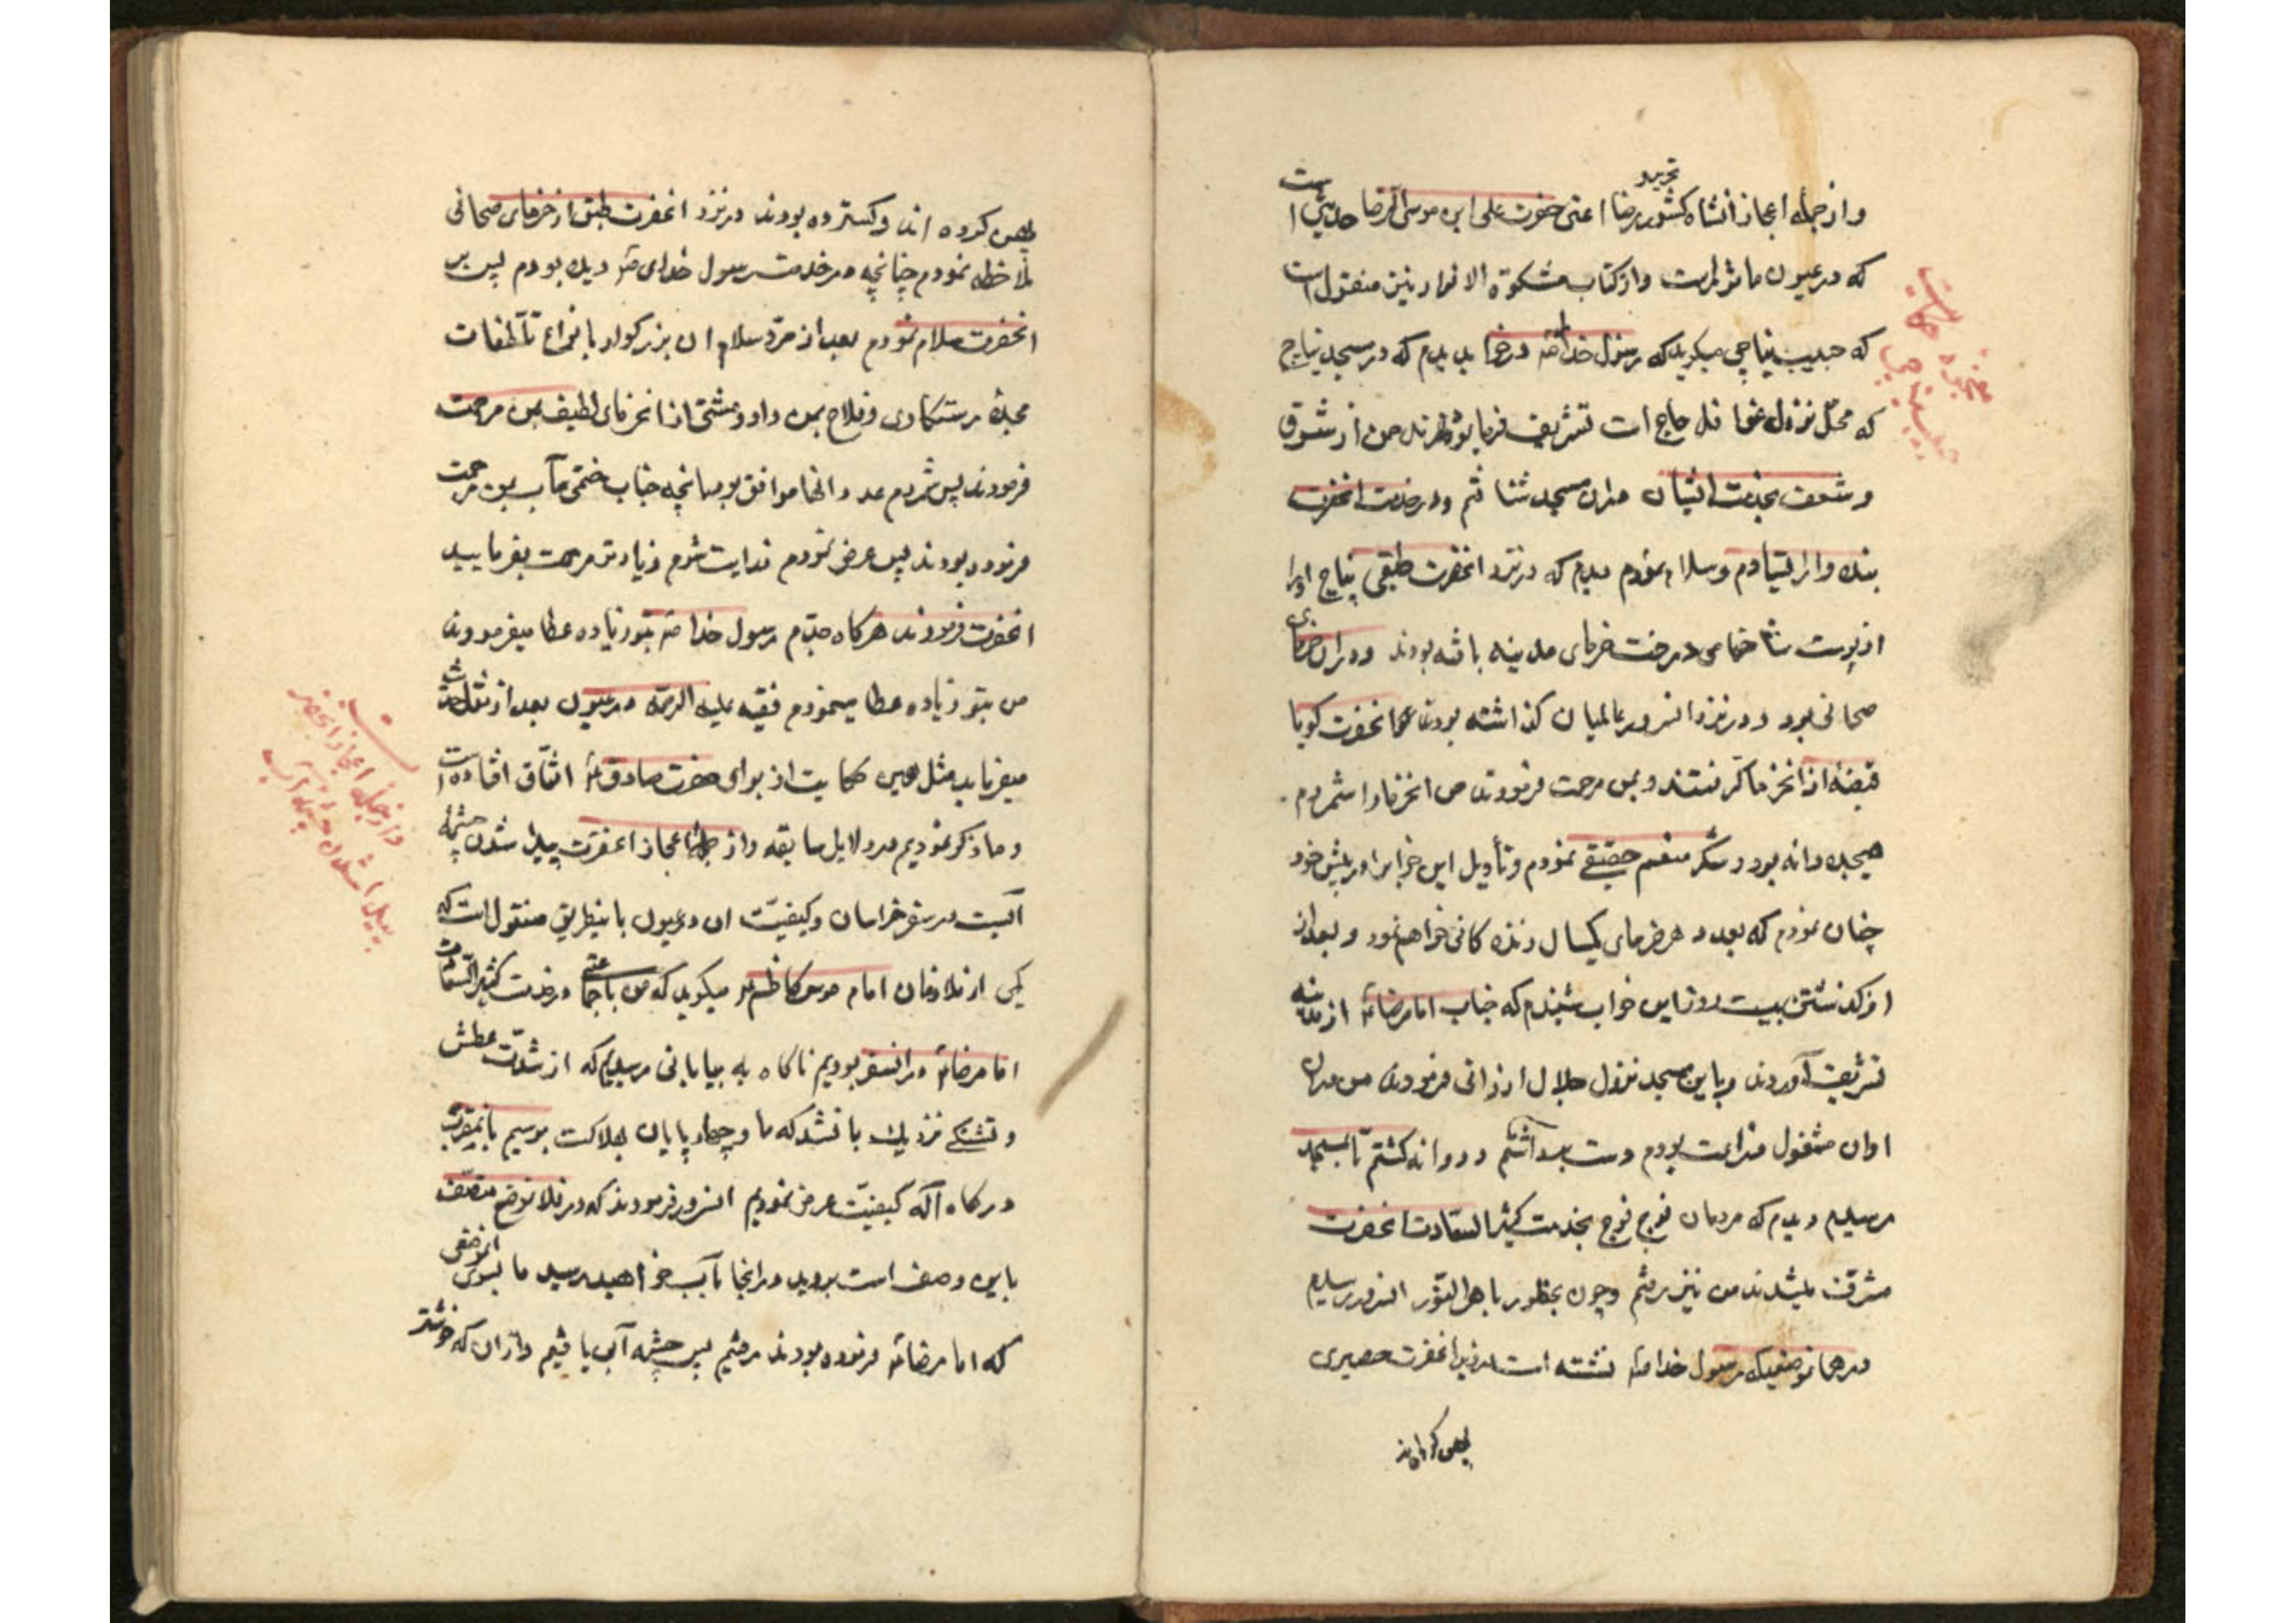 و از جمله اعجاز انشاه کشور رضا اعنی حضرت علی ابن موسی الرضا حدیثی است
که در عیون ماثور است و از کتاب مشکوة الانوار نیز منقول است
که حبیب نباجی میکوید که رسول خدا صه را در خواب دیدم که در مسجد نباج
که محل نزول قوافل حاج است تشریف فرما بودند من از شوق
و شعف بخدمت ایشان در ان مسجد شتافتم و در خدمت انحضرت
بنده وار ایستادم و سلام نمودم دیدم که در نزد انحضرت طبقی
از پوست شاخهای درخت خرمای مدینه بافته بودند و در ان خرمای
صحانی بود و در نزد انسرور عالمیان کذاشته بودند انحضرت کویا
قبضهٔ از انخرما کرفتند و بمن مرحمت فرمودند من انخرما را شمردم
هیجده دانه بود شکر منعم حقیقی نمودم و تأویل این خواب را در پیش خود
چنان نمودم که بعدد هر خرمای یکسال زنده کانی خواهم نمود و بعد از
از کذشتن بیست روز این خواب شنیدم که جناب امام رضا از مدینه
تشریف آوردند و باین مسجد نزول جلال ارزانی فرمودند من در ان
اوان مشغول زراعت بودم دست برداشتم و روانه کشتم تا بمسجد
رسیدم دیدم که مردمان فوج فوج بخدمت کثیر السعادت انحضرت
مشرف میشدند من نیز رفتم و چون بحضور باهر النور انسرور رسیدم
در همان موضعیکه رسول خدا صه نشسته است در زیر انحضرت حصیری
پهن کرده اند
معجزه
پهن کرده اند و کسترده بودند و در نزد انحضرت طبق از خرمای صحانی
ملاحظه نمودم چنانچه در خدمت رسول خدای صه دیده بودم پس بر
انحضرت سلام نمودم بعد از رد سلام ان بزرکوار با انواع تلطفات
مژده رستکاری و فلاح بمن داد و مشتی از انخرمای لطیف بمن مرحمت
فرمودند پس شمردم عدد انها موافق بود با انچه جناب ختمی مآب بمن مرحمت
فرموده بودند پس عرض نمودم فدایت شوم زیادتر مرحمت بفرمایید
انحضرت فرمودند هرکاه جدم رسول خدا صه بتو زیاده عطا میفرمودند
من بتو زیاده عطا مینمودم فقیه علیه الرحمه در عیون بعد از نقل حدیث
میفرماید مثل همین حکایت از برای حضرت صادق ع اتفاق افتاده است
و ما ذکر نمودیم در دلایل سابقه و از جمله اعجاز انحضرت پیدا شدن چشمهٔ
آبست در سفر خراسان و کیفیت ان در عیون باینطریق منقول است که
یکی از ملازمان امام موسی کاظم ع میکوید که من با جماعتی در خدمت کثیر السعادت
امام رضا ع در انسفر بودیم ناکاه به بیابانی رسیدیم که از شدت عطش
و تشنکی نزدیک باانشد که ما و چهارپایان بهلاکت برسیم بانمقرب
درکاه آله کیفیت عرض نمودیم انسرور فرمودند که در فلان موضع متصف
باین وصف است بروید در انجا بآب خواهید رسید ما بسوی انموضعی
که امام رضا ع فرموده بودند رفتیم پس چشمه آبی یافتیم و از ان که خوشتر
و از جمله اعجاز انحضرت
پیدا شدن چشمه آب است